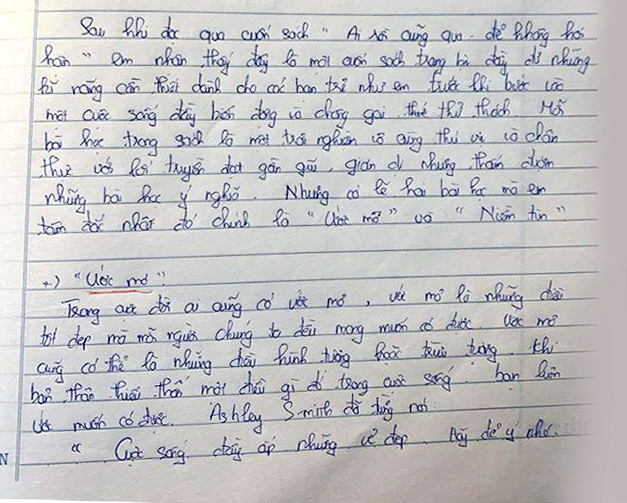 Sau khi đọc qua cuốn sách " Ai rồi cũng qua. để không hối
hận " em nhận thấy đây là một cuốn sách trang bị đầy đủ những
kĩ năng cần thiết dành cho các bạn trẻ như em trước khi bước vào
một cuộc sống đầy biến động và chông gai thử thách. Mỗi
bài học trong sách là một trải nghiệm vô cùng thú vị và chân
thực với lối truyền đạt gần gũi, giản dị nhưng thấm đượm
những bài học ý nghĩa. Nhưng có lẽ hai bài học mà em
tâm đắc nhất đó chính là "Ước mơ" và "Niềm tin"
+) "Ước mơ":
Trong cuộc đời ai cũng có ước mơ, ước mơ là những điều
tốt đẹp mà mỗi người chúng ta đều mong muốn có được. Ước mơ
cũng có thể là những điều hình tượng hoặc trừu tượng. Khi
bản thân thiếu thốn một điều gì đó trong cuộc sống. bạn luôn
ước muốn có được. Ashley Smith đã từng nói:
" Cuộc sống đầy ắp những vẻ đẹp. Hãy để ý nhé.